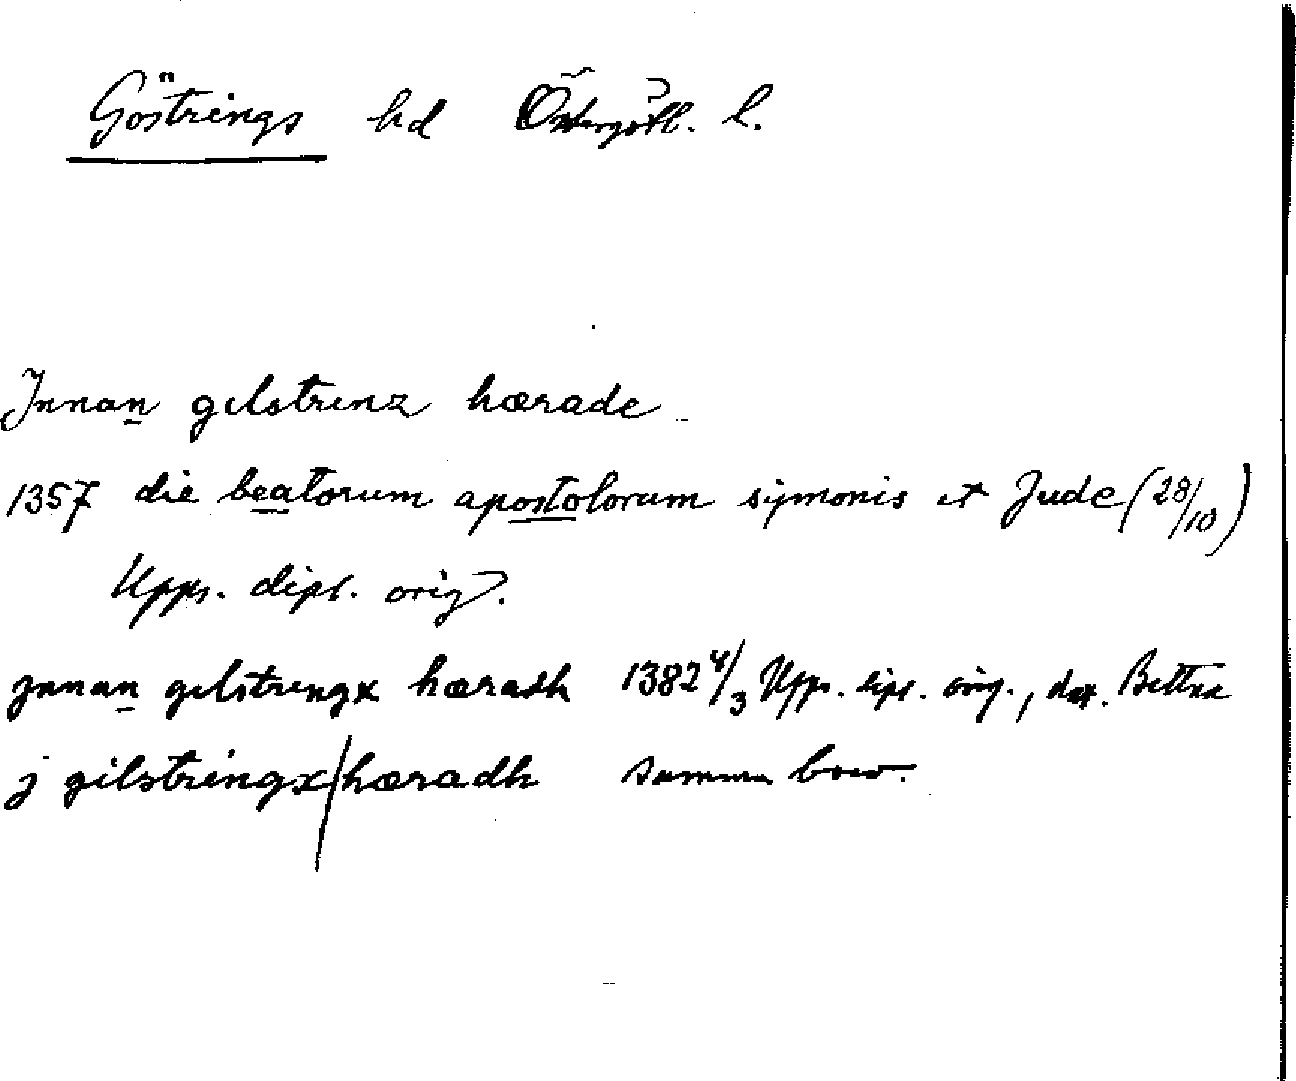 Göstrings hd Östergötl. l.
Innan gilstrinz hærade
1357 die beatorum apostolorum symonis et Jude (28/10)
Upps. dipl. orig.
jnnan gilstringx hæradh 1382 4/3 Upps. dipl. orig., dat. Bettna
j gilstringx/hæradh samma brev.